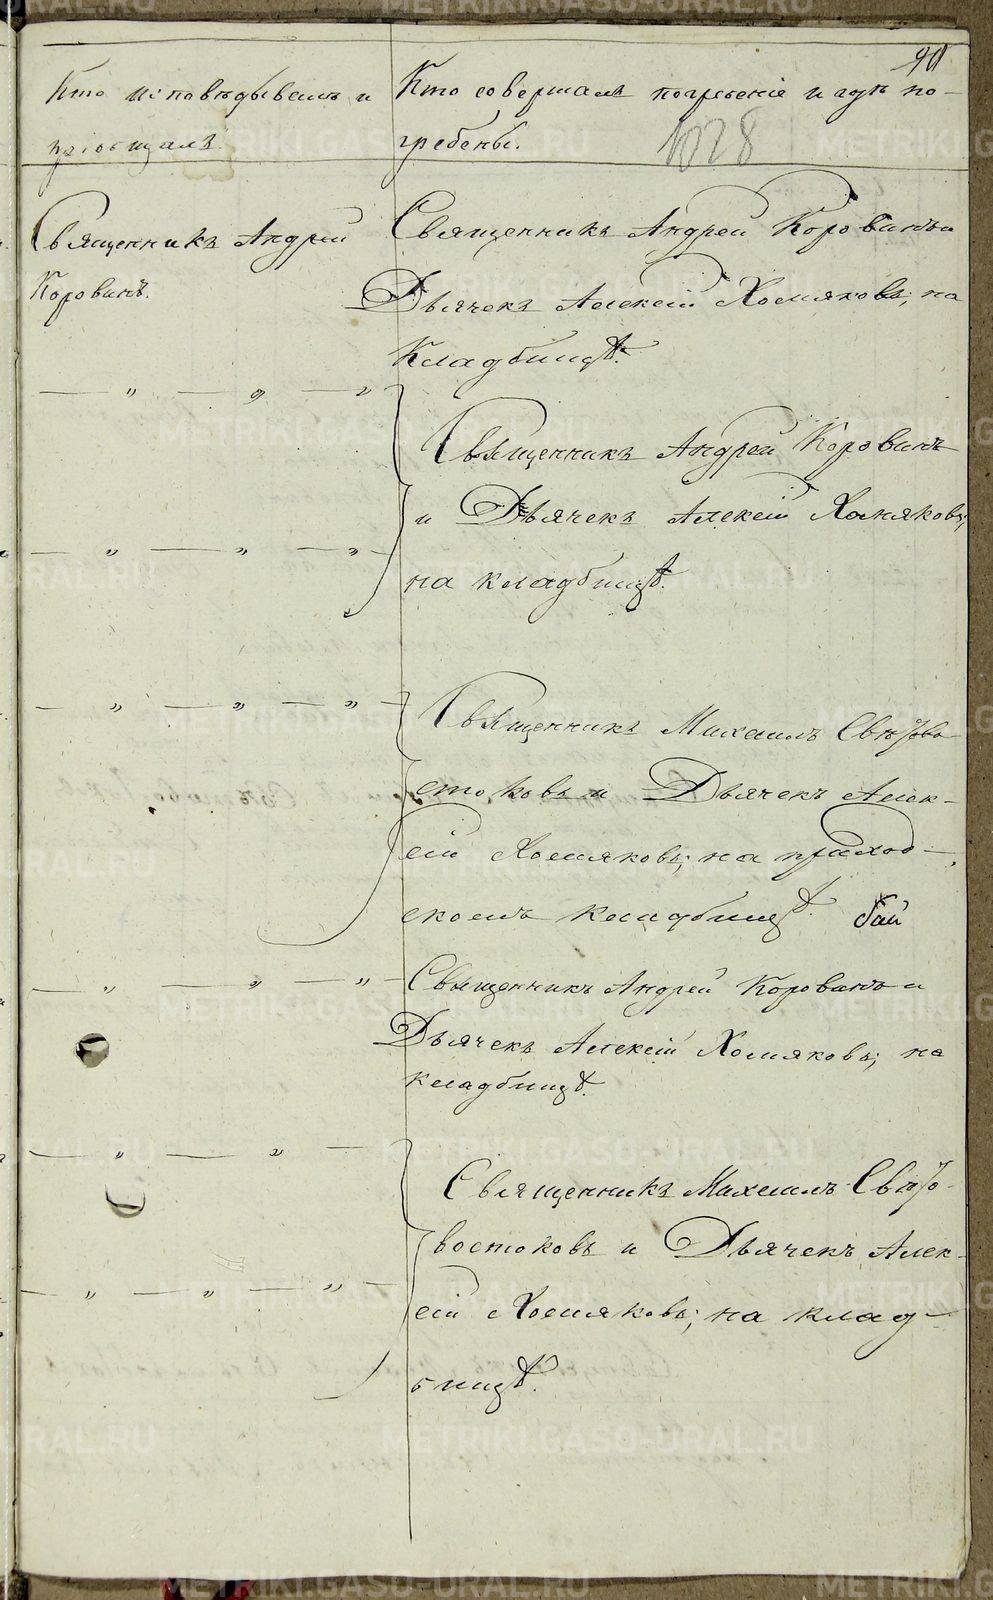 90
Кто исповѣдывалъ и
пріобщалъ.
Кто совершалъ погребеніе и гдѣ по-
гребены.
1028
Священникъ Андрей
Коровинъ.
Священникъ Андрей Коровинъ и
Дьячекъ Алексій Хомяковъ; на
Кладбищѣ.
— " — " — "
Священникъ Андрей Коровинъ
и Дьячекъ Алексій Хомяковъ;
на кладбищѣ.
— " — " — "
— " — " — " —
Священникъ Михаилъ Свѣтово
стоковъ и Дьячекъ Алек-
сій Хомяковъ; на приход-
скомъ кладбищѣ.
— " — " — " —
Священникъ Андрей Коровинъ и
Дьячекъ Алексій Хомяковъ; на
кладбищѣ.
— " — " —
Священникъ Михаилъ Свѣто-
востоковъ и Дьячекъ Алек-
сій Хомяковъ; на клад-
бищѣ.
— " — " — " —
METRIKI.GASO-URAL.RU